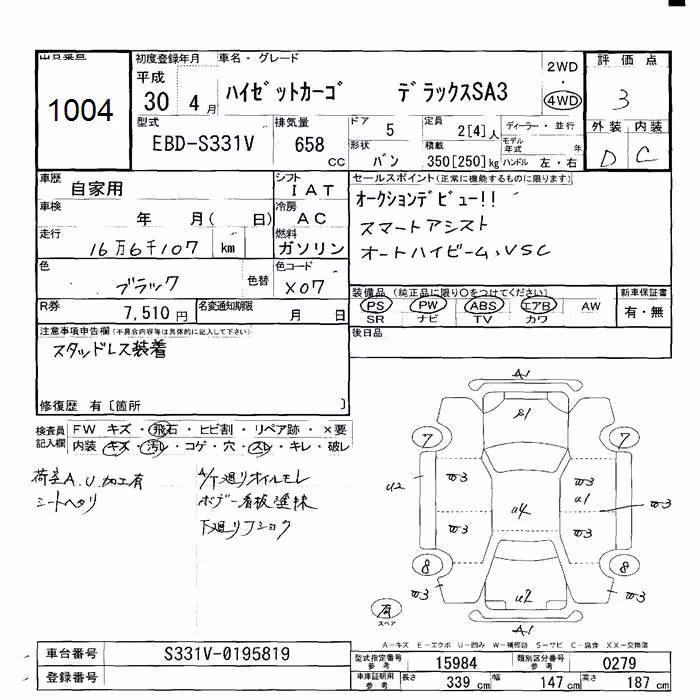 出品番号
1004
初度登録年月
平成
30年 4月
車名・グレード
ハイゼットカーゴ デラックスSA3
2WD
・
4WD
評価点
3
型式
EBD-S331V
排気量
658
CC
ドア
5
定員
2[4]人
ディーラー・並行
モデル年式 年
形状
バン
積載
350[250]kg
ハンドル 左・右
外装 内装
D C
車歴
自家用
シフト
IAT
車検
年 月( 日)
冷房
AC
走行
16万6千107 km
燃料
ガソリン
色
ブラック
色替
色コード
X07
R券
7,510円
名変通知期限
月 日
セールスポイント(正常に機能するものに限ります)
オークションデビュー!!
スマートアシスト
オートハイビーム、VSC
装備品 (純正品に限り○をつけてください)
PS PW ABS エアB AW
SR ナビ TV カワ
新車保証書
有・無
後日品
注意事項申告欄(不具合内容等は具体的に記入して下さい)
スタッドレス装着
修復歴 有〔箇所 〕
検査員
記入欄
FW キズ・飛石・ヒビ割・リペア跡・×要
内装・キズ・汚レ・コゲ・穴・スレ・キレ・破レ
荷室A.U.加工有
シートヘタリ
A/T廻りオイルモレ
ボデー看板塗抹
下廻りフショク
A1
e1
7
7
U2
W3
W3
W3
W3
U1
U4
W3
W3
8
8
W3
W3
U2
A1
有
スペア
A-キズ E-エクボ U-凹み W-補修跡 S-サビ C-腐食 XX-交換済
車台番号
S331V-0195819
登録番号
型式指定番号
参考
15984
類別区分番号
参考
0279
車庫証明用
参考
長さ
339 cm
幅
147 cm
高さ
187 cm